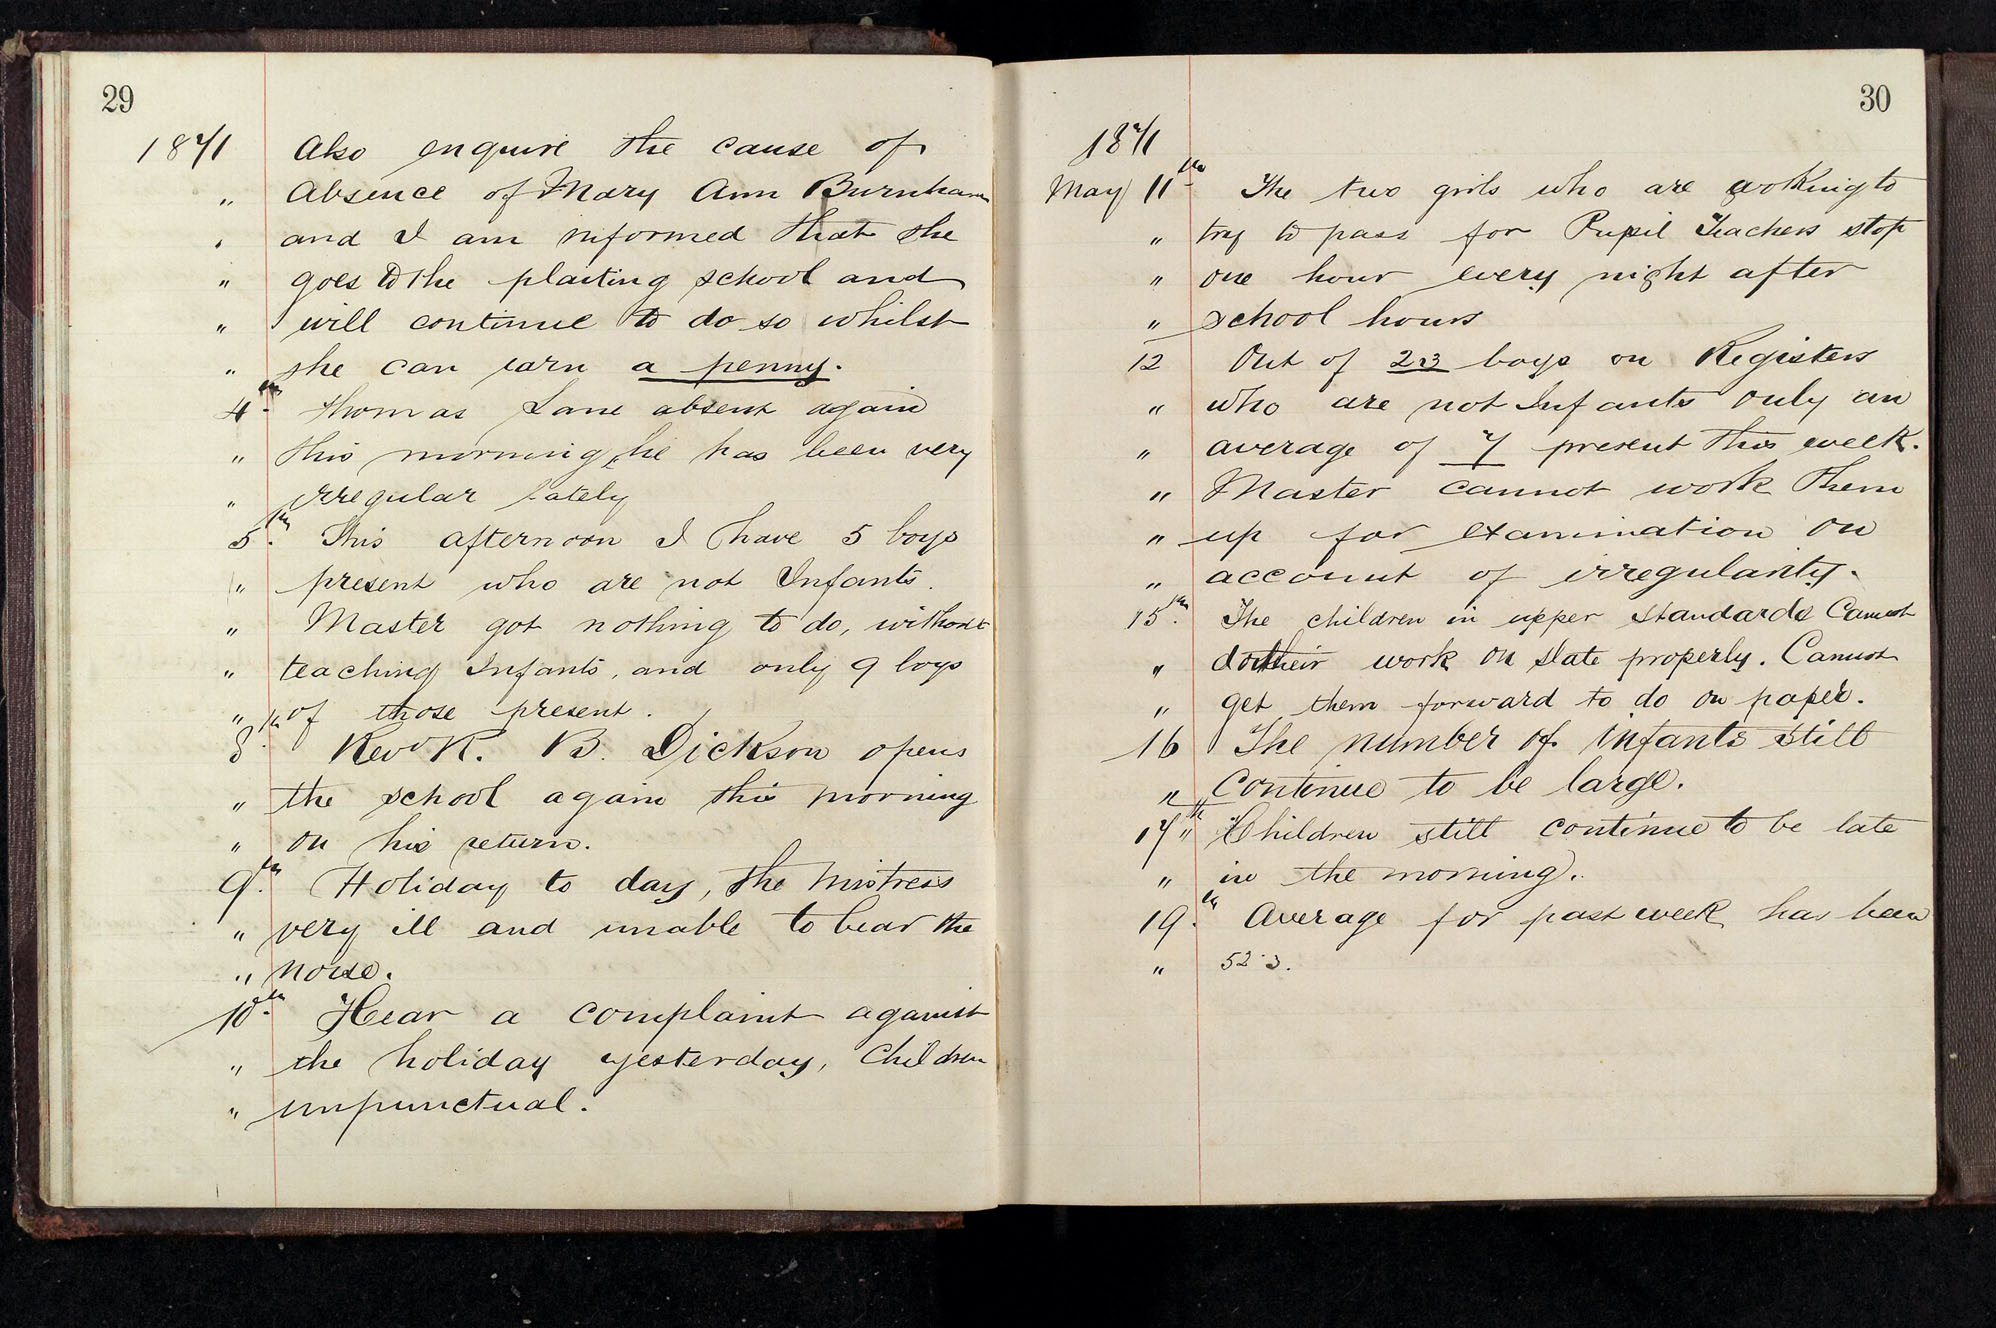 29
1871 Also enquire the cause of
" Absence of Mary Ann Burnham
" and I am informed that she
" goes to the plaiting school and
" will continue to do so whilst
" she can earn a penny.
4th Thomas Lane absent again
" this morning, he has been very
" irregular lately
5th This afternoon I have 5 boys
" present who are not Infants.
" Master got nothing to do, without
" teaching Infants, and only 9 boys
" of those present.
8th Revd R. B. Dickson opens
" the school again this morning
" on his return.
9th Holiday to day, the Mistress
" very ill and unable to bear the
" noise.
10th Hear a complaint against
" the holiday yesterday, Children
" unpunctual.
30
1871
May 11th The two girls who are working to
" try to pass for Pupil Teachers stop
" one hour every night after
" school hours
12 Out of 23 boys on Registers
" who are not Infants only an
" average of 7 present this week.
" Master cannot work them
" up for examination on
" account of irregularity.
15th The children in upper standards Cannot
" do their work on slate properly. Cannot
" get them forward to do on paper.
16 The number of infants still
" Continue to be large.
17th Children still continue to be late
" in the morning.
19th Average for past week has been
" 52.3.